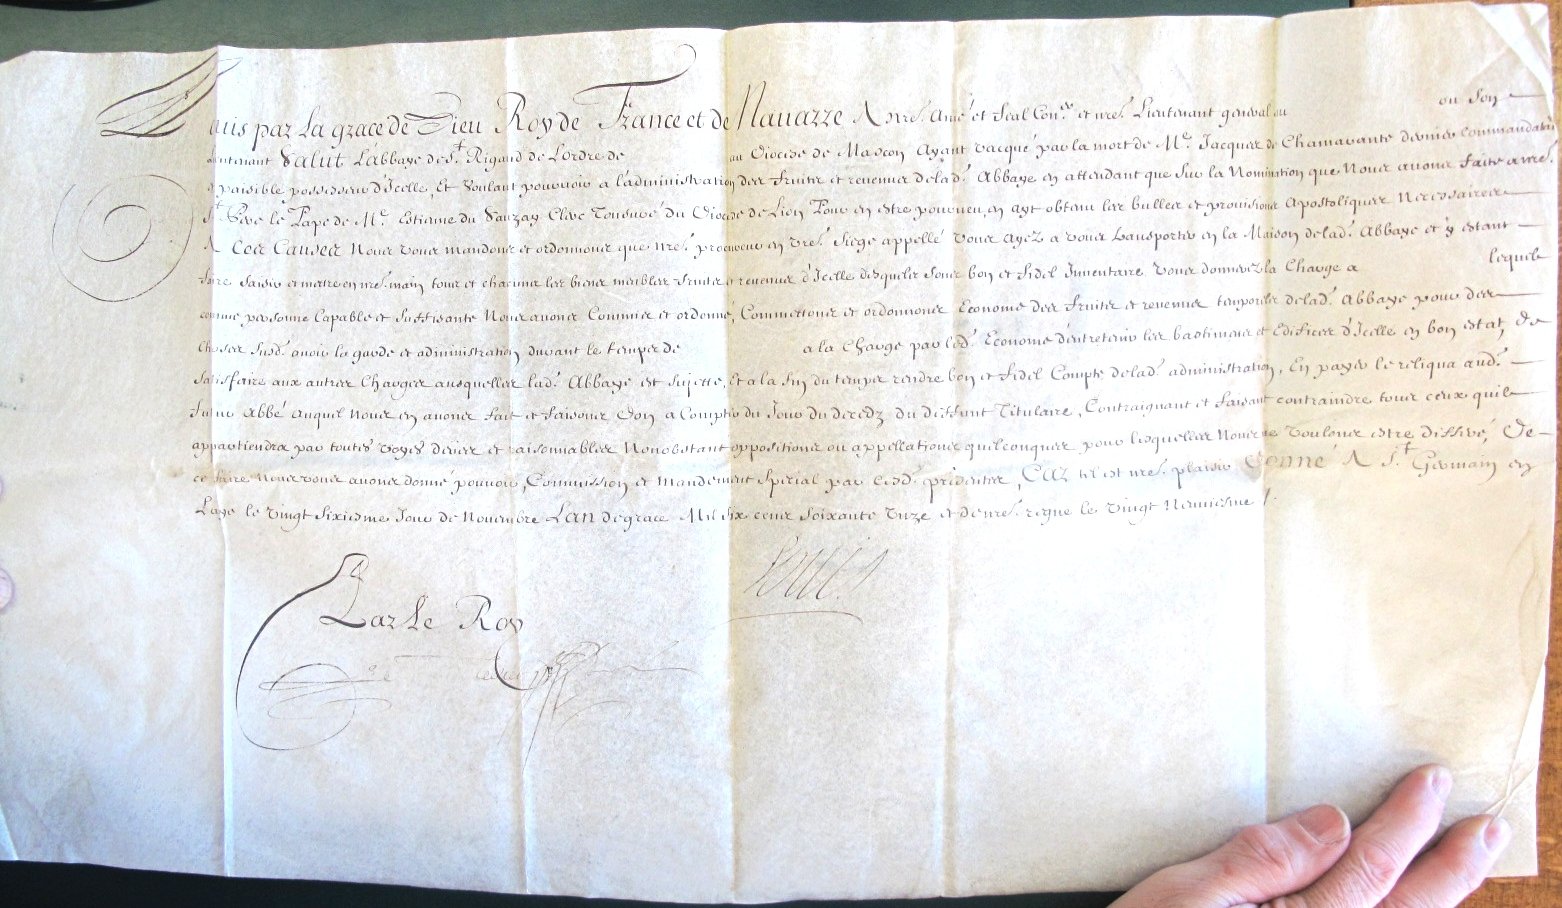 Louis par La grace de Dieu Roy de France et de Navarre A nre. amé et feal Conser. et nre. Lieutenant general au ou son
Lieutenant Salut L'abbaye de St. Rigaud de L'ordre de au Diocese de Mascon Ayant vacqué par la mort de Me. Jacques de Chamarante dernier commandataire
et paisible possesseur d'Icelle, Et Voulant pourvoir a l'administration des fruits et revenus de lad. Abbaye en attendant que sur la Nomination que Nous avons faite a nre.
St. Pere le Pape de Me. Estienne du Sauzay Clerc Tonsuré du Diocese de Lion Pour en estre pourveu, en ayt obtenu les bulles et provisions Apostoliques Necessaires
A Ces Causes Nous vous mandons et ordonnons que nre. procureur en vre. Siege appellé vous ayez a vous transporter en la Maison de lad. Abbaye et y estant
faire saisir et mettre en nre. main tous et chacuns les biens meubles fruits et revenus d'Icelle desquels sous bon et fidel Inventaire vous donnerez la Charge a lequel
comme personne Capable et suffisante Nous avons Commis et ordonné, Commettons et ordonnons Econome des fruits et revenus temporels de lad. Abbaye pour des
choses susd. avoir la garde et administration durant le temps de a la Charge par led. Econome d'entretenir les bastimens et Edifices d'Icelle en bon estat, de
satisfaire aux autres Charges ausquelles lad. Abbaye est sujette, Et a la fin du temps rendre bon et fidel Compte de lad. administration, En payer le reliqua aud.
futur Abbé auquel Nous en avons fait et faisons Don a Compter du Jour du decedz du deffunt Titulaire, Contraignant et faisant contraindre tous ceux quil
appartiendra par toutes voyes deues et raisonnables Nonobstant oppositions ou appellations quelconques pour lesquelles Nous ne Voulons estre differé, De
ce faire Nous vous avons donné pouvoir, Commission et Mandement Special par cesd. presentes, CAR tel est nre. plaisir Donné A St. Germain en
Laye le vingt sixiesme Jour de Novembre L'AN de grace Mil six cens soixante Unze et de nre. regne le vingt Neuviesme /.
Louis
Par Le Roy